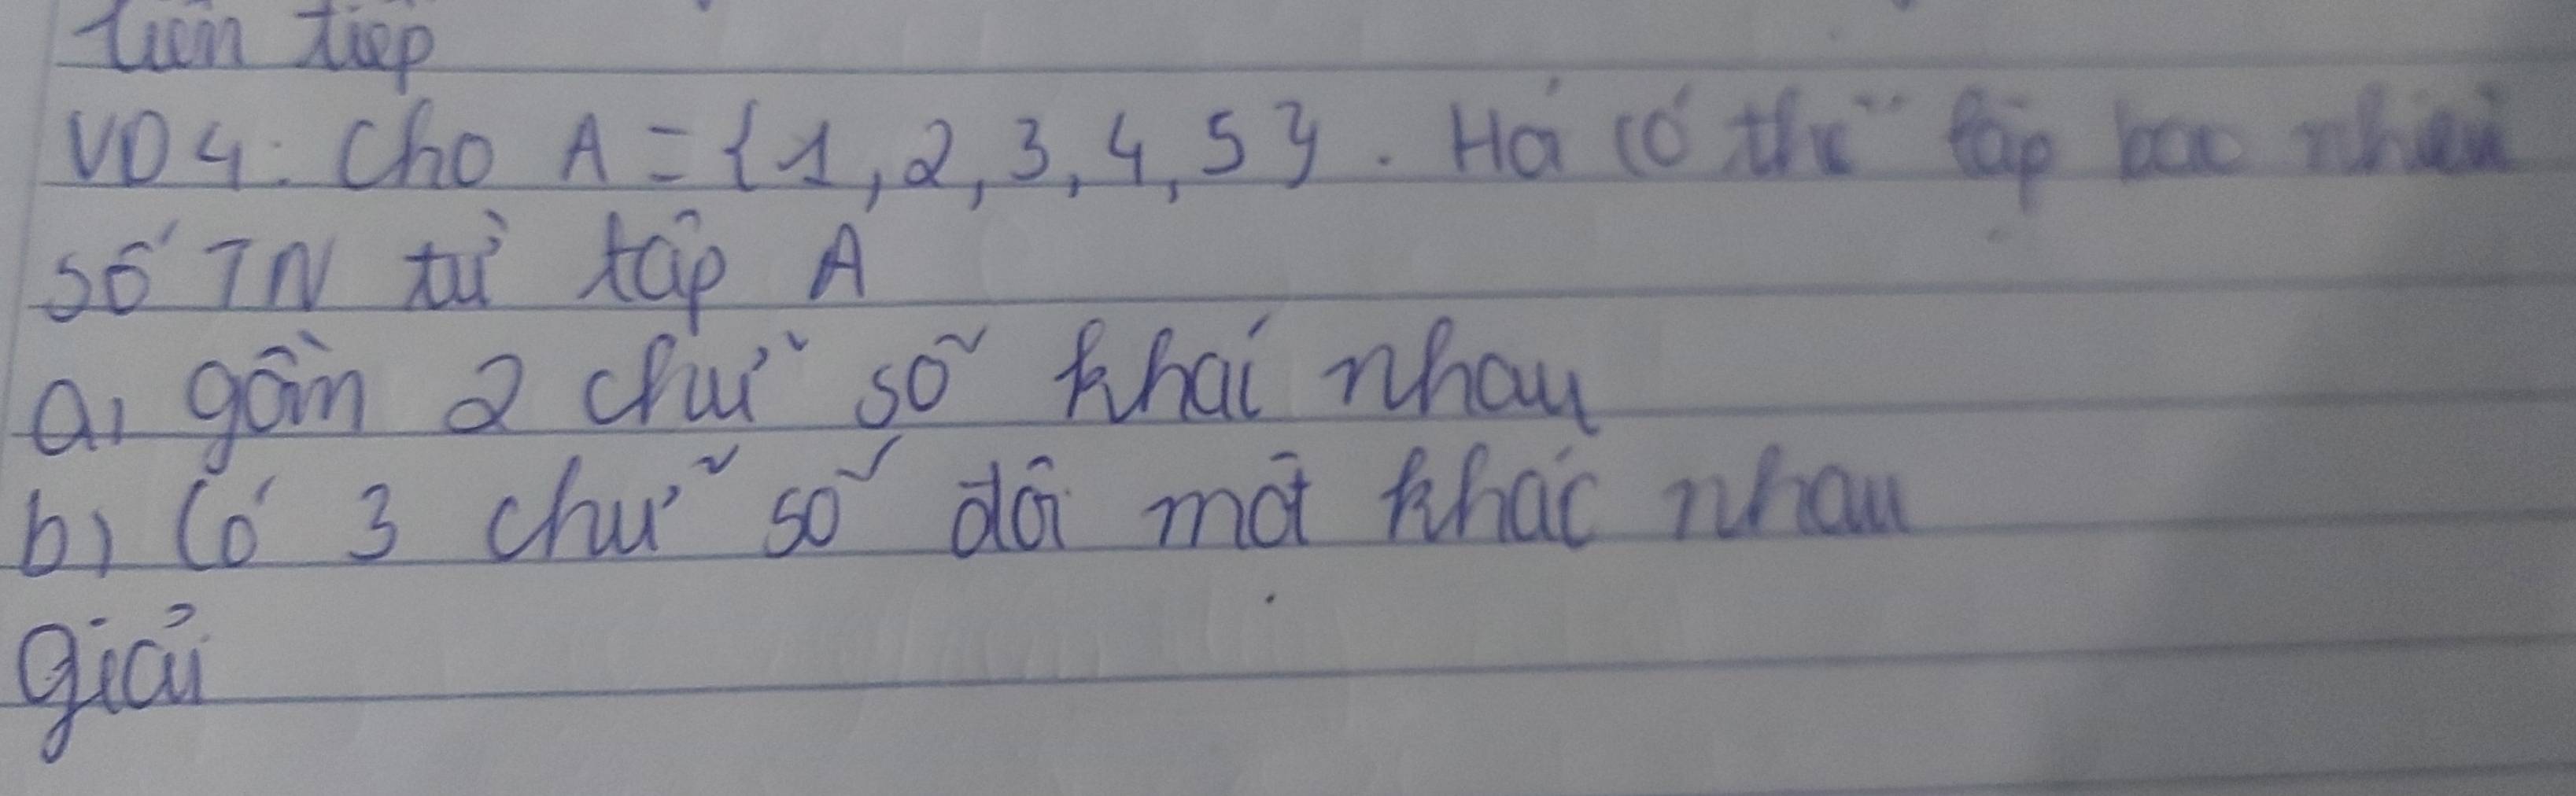 liên tiếp
VD4: Cho A = {1, 2, 3, 4, 5}. Hỏi có thể lập bao nhiêu
số TN từ tập A
a, gồm 2 chữ số khác nhau
b, Có 3 chữ số đôi một khác nhau
giải